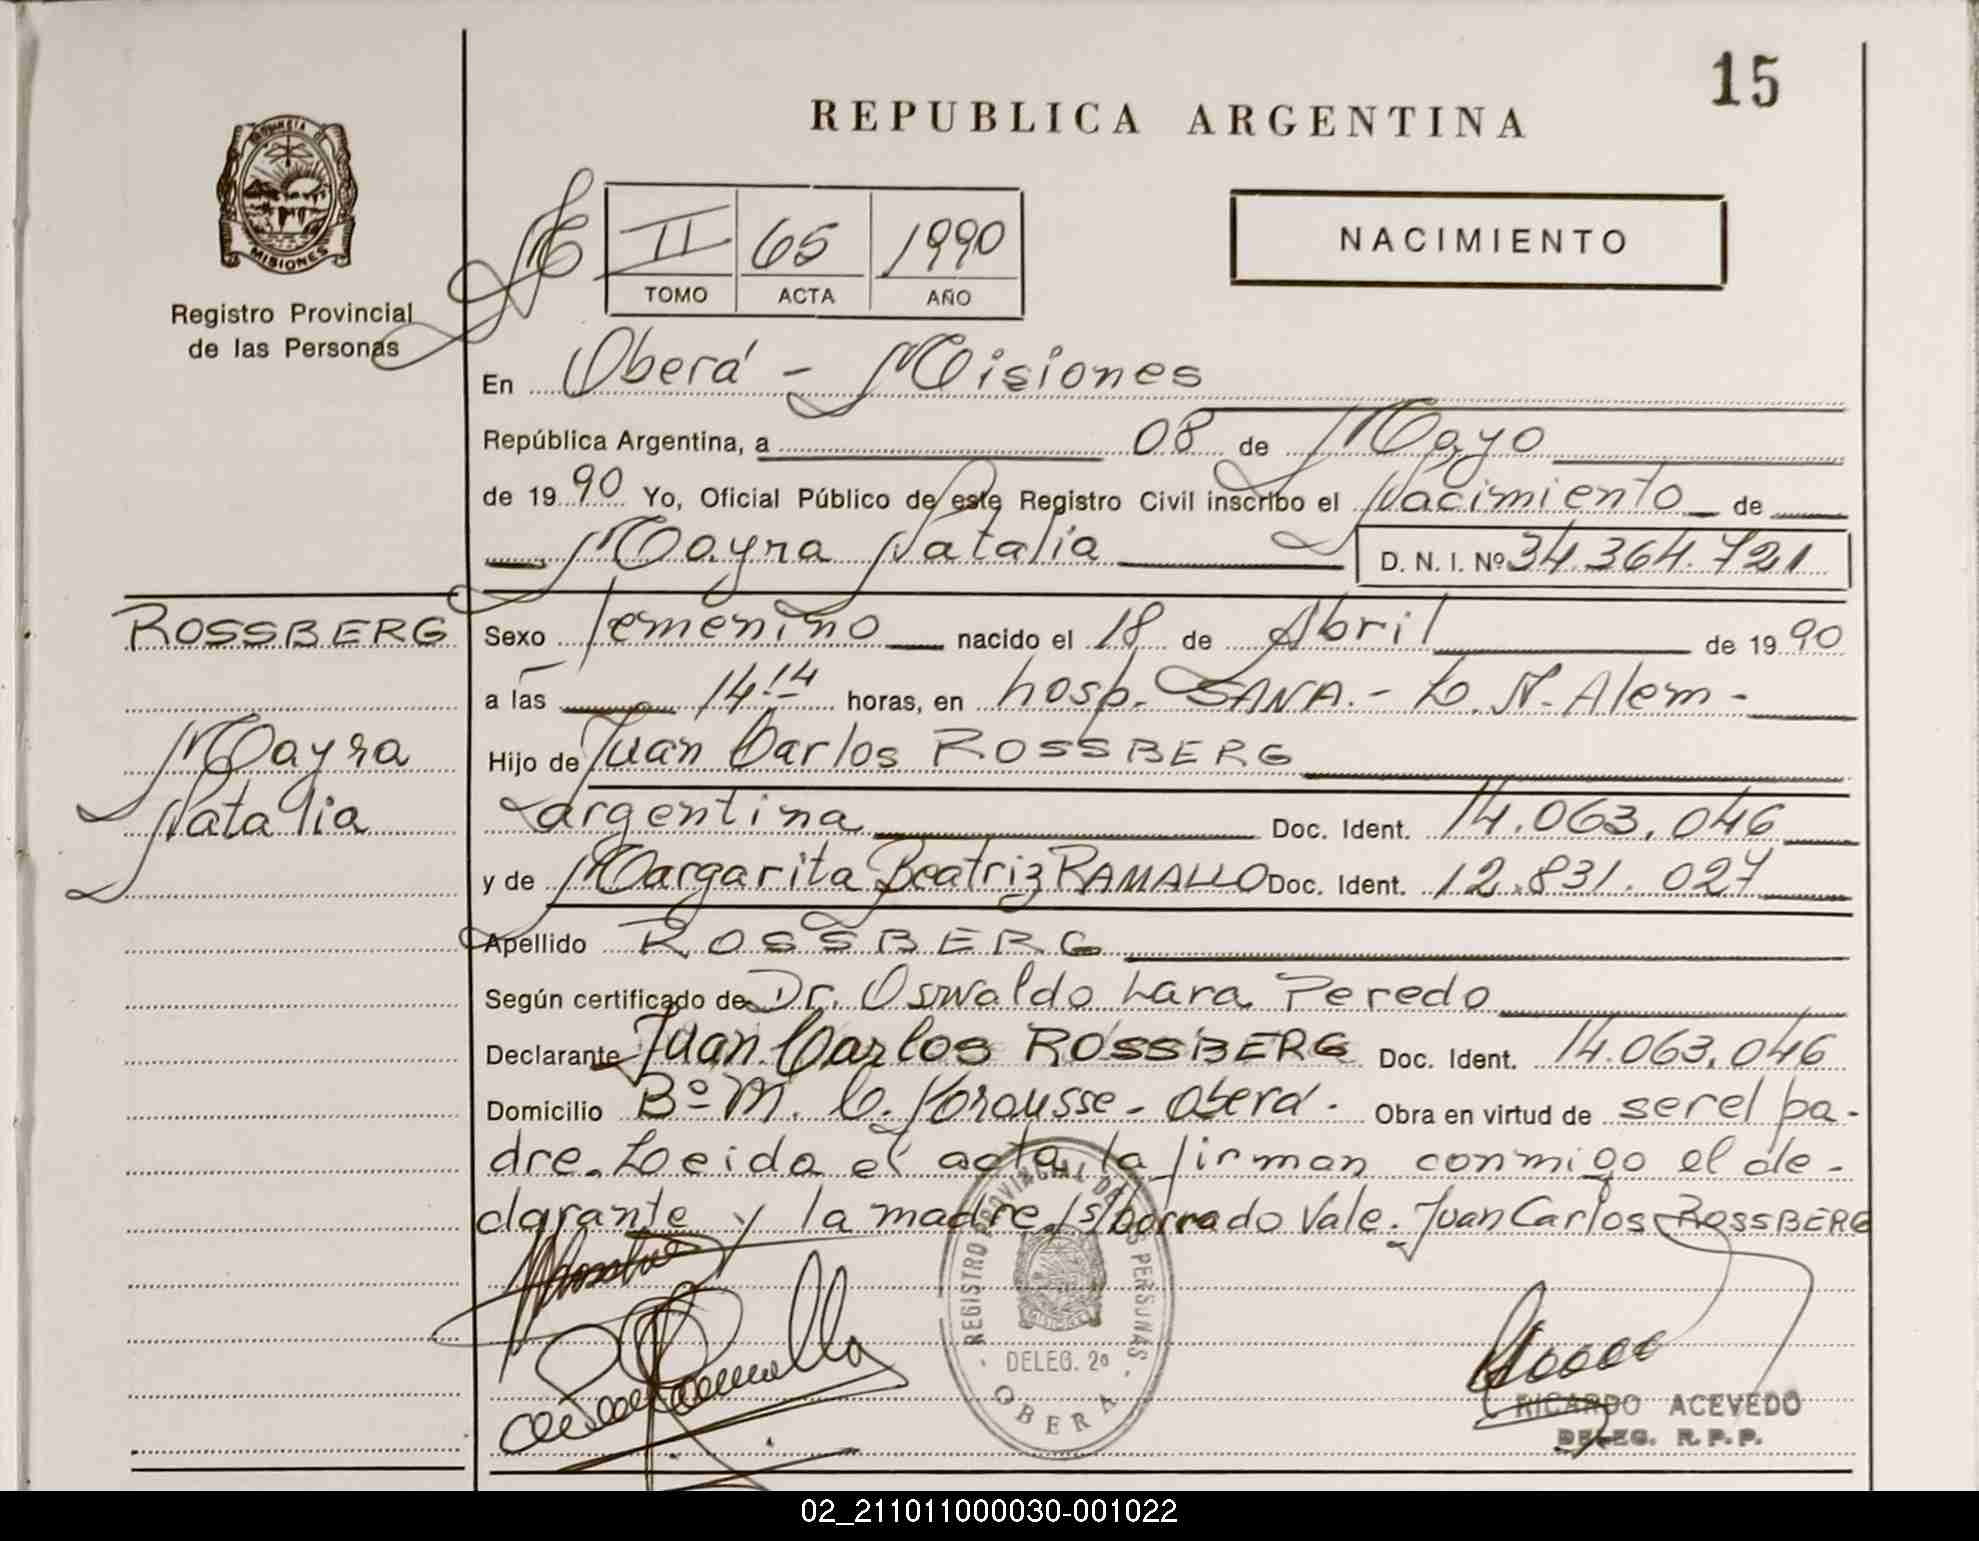 15
REPUBLICA ARGENTINA
PROVINCIA DE
MISIONES
Registro Provincial
de las Personas
II 65 1990
TOMO ACTA AÑO
NACIMIENTO
En Oberá - Misiones
República Argentina, a 08 de Mayo
de 1990 Yo, Oficial Público de este Registro Civil inscribo el Nacimiento de
Mayra Natalia D. N. I. Nº 34.364.721
ROSSBERG
Mayra
Natalia
Sexo femenino nacido el 18 de Abril de 1990
a las 14:14 horas, en hosp. SANA.- L. N. Alem -
Hijo de Juan Carlos ROSSBERG
argentina Doc. Ident. 14.063.046
y de Margarita Beatriz RAMALLO Doc. Ident. 12.831.027
Apellido ROSSBERG
Según certificado de Dr. Oswaldo Lara Peredo
Declarante Juan Carlos ROSSBERG Doc. Ident. 14.063.046
Domicilio Bº M. C. Krausse - Oberá. Obra en virtud de ser el pa-
dre. Leida el acta, la firman conmigo el de-
clarante y la madre. /s/borrado Vale. Juan Carlos ROSSBERG
REGISTRO PROVINCIAL DE LAS PERSONAS
DELEG. 2ª
OBERA
RICARDO ACEVEDO
DELEG. R. P. P.
02_211011000030-001022